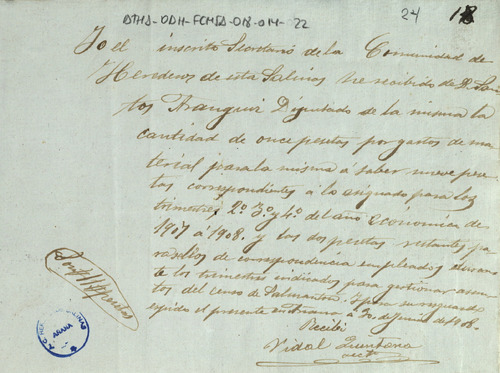 ATHA-DDH-FCMEA-018-014-22
24 18
Yo el inscrito Secretario de la Comunidad de
Herederos de esta Salinas he recibido de D. San
tos Aranguiz Diputado de la misma la
cantidad de once pesetas por gastos de ma
terial para la misma á saber nueve pese
tas correspondientes á lo asignado para los
trimestres 2º 3º y 4º del año económico de
1907 á 1908. y las dos pesetas restantes pa
ra sellos de correspondencia empleados duran
te los trimestres indicados para gestionar asun
tos del censo de Salmanton. Y para su resguardo
expido el presente en Añana á 30 de Junio de 1908.
Recibí
Vidal Quintana
SALINAS
ARANA